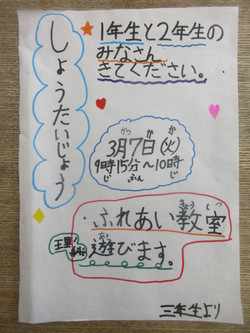 しょうたいじょう
1年生と2年生の
みなさん
きてください。
3月7日(火)
9時15分~10時
・ふれあい教室
遊びます。
三年生より